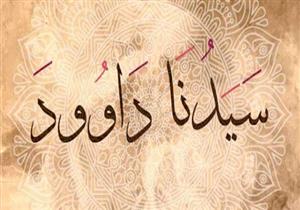 سَيَدُنَا دَاوُودَ